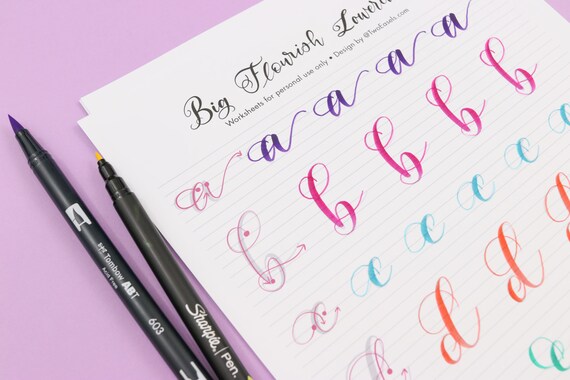 Big Flourish Lowerc
Worksheets for personal use only • Design by @TwoEasels.com
a a a a a
b b b b b
c c c c c c
d d d
Tombow ABT
603
Sharpie. Pen.